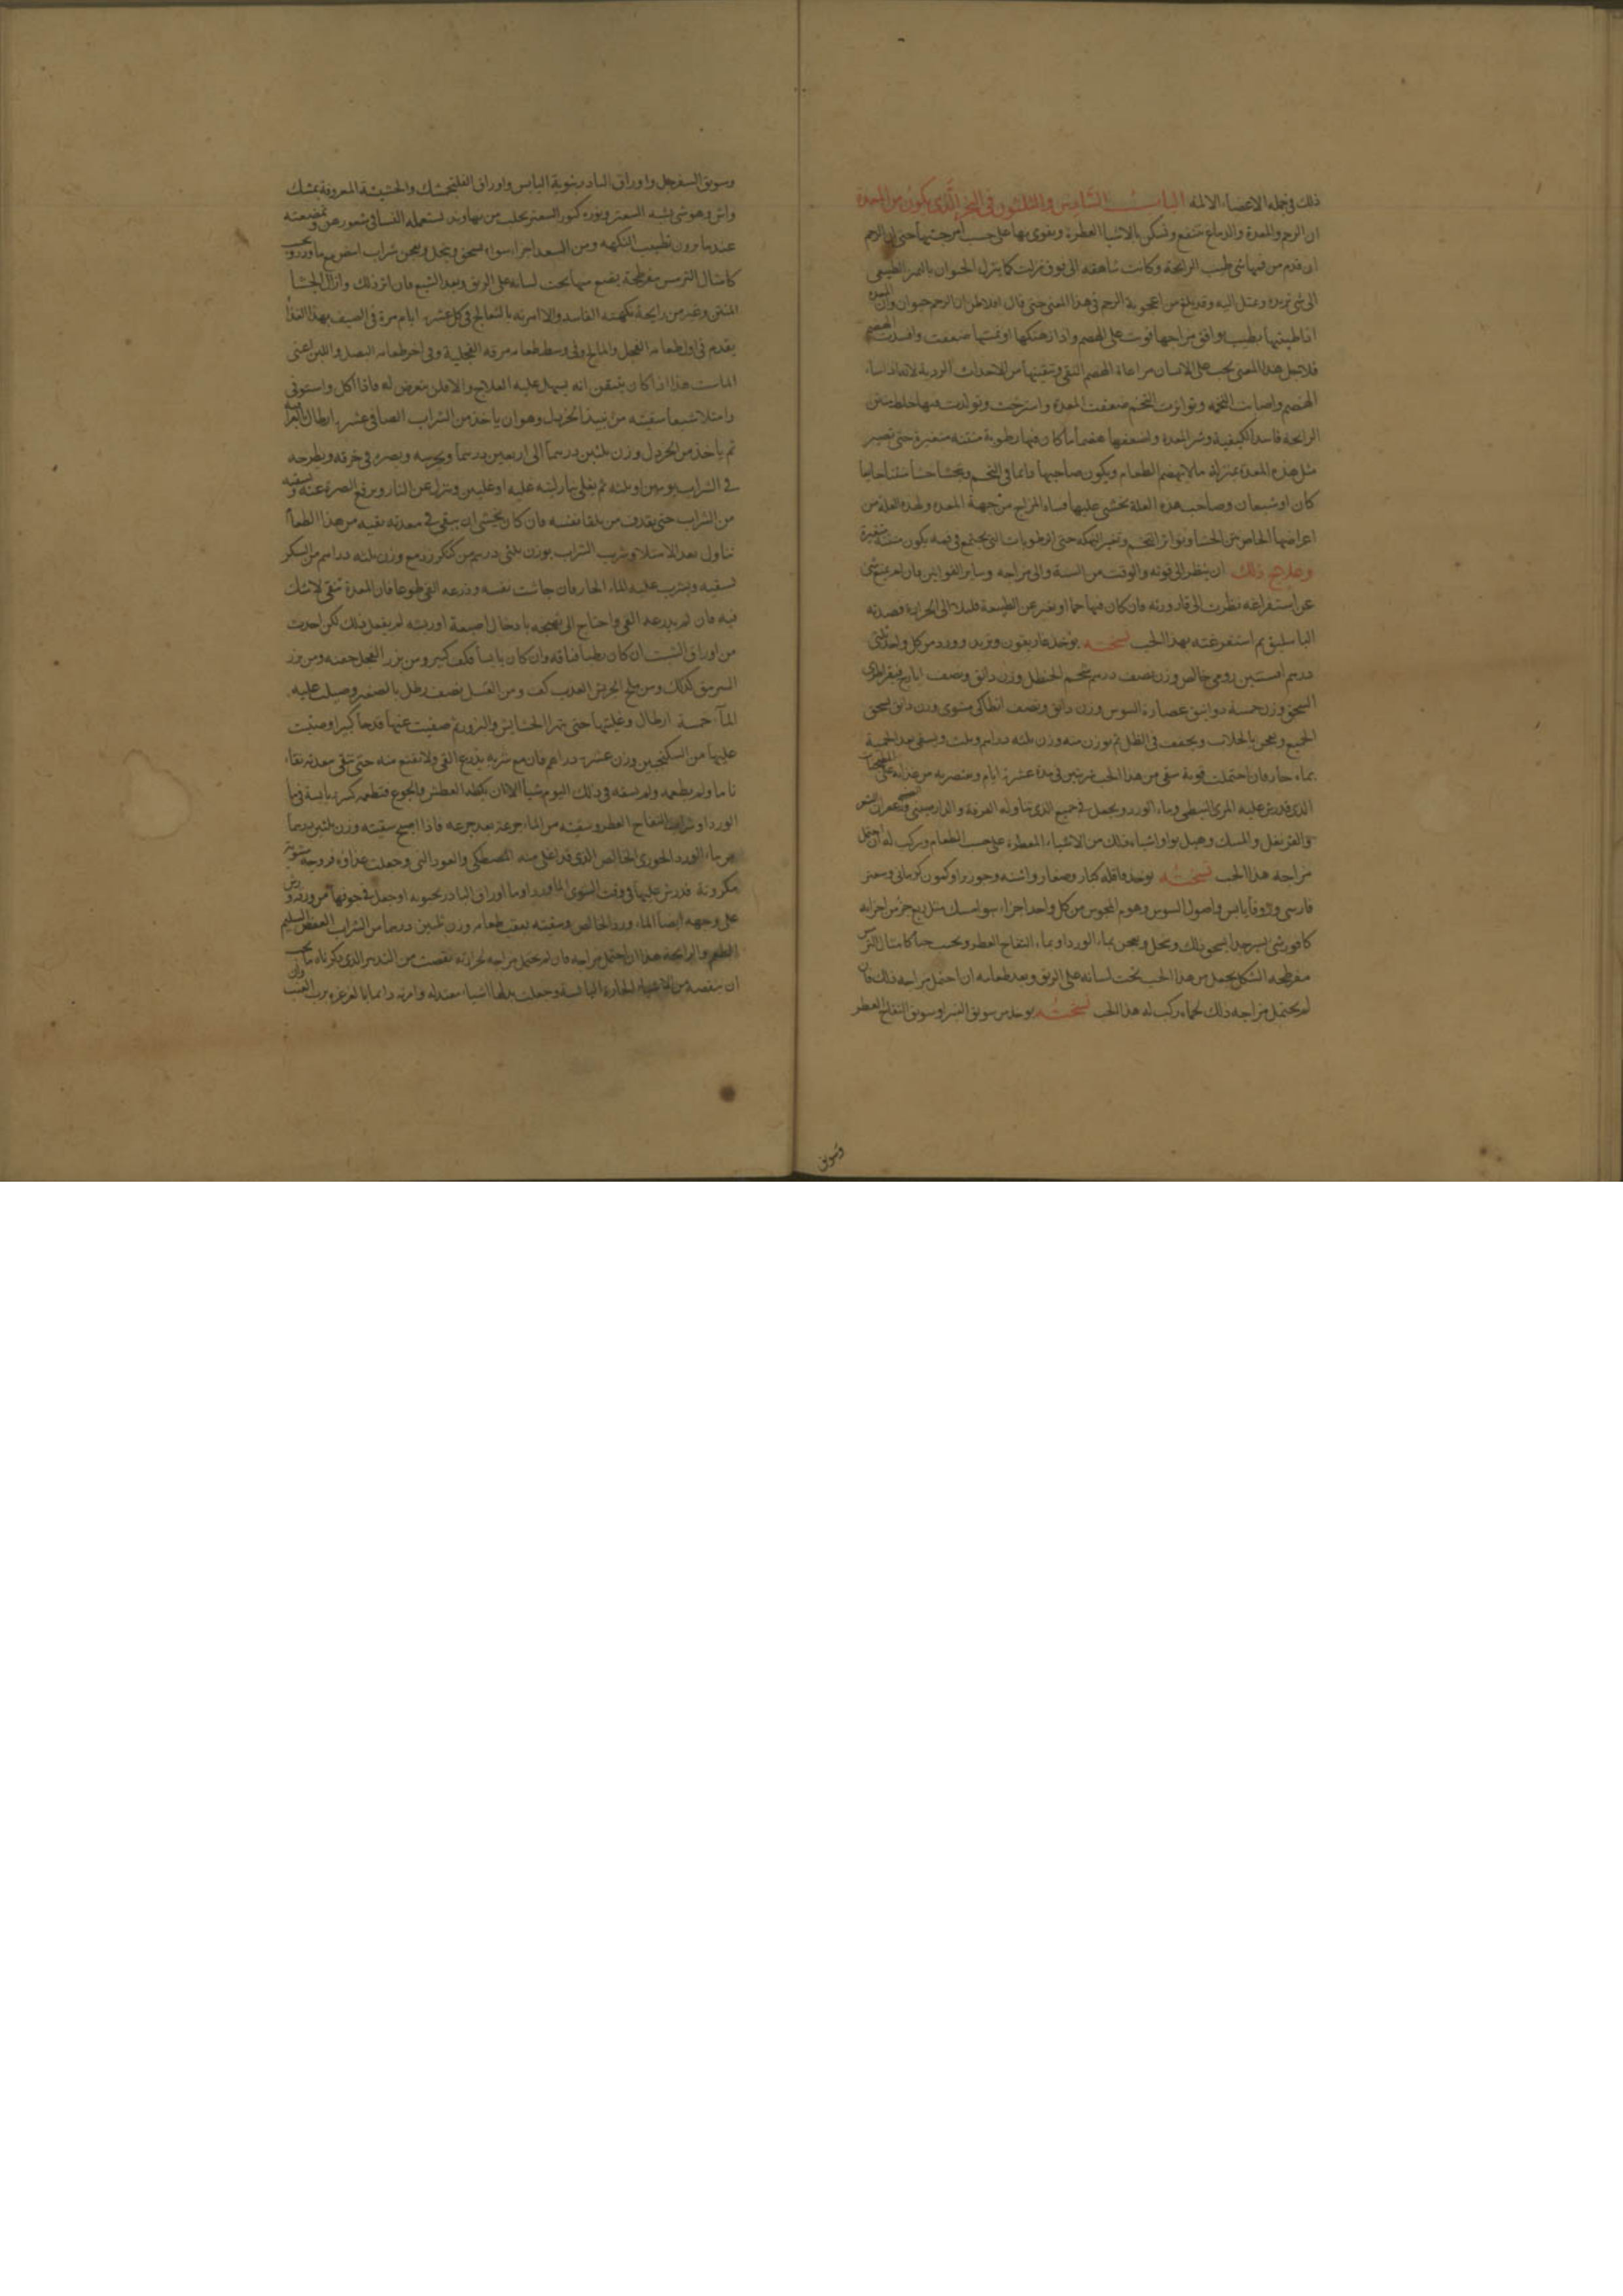 ذلك في جملة الاعضاء الالمة الباب السادس والثلثون في البخر الذي يكون من المعدة
ان الرحم والمعدة والدماغ تنتفع وتسكن بالاشياء العطرة وتقوى بها على حسب امزجتها حتى ان الرحم
ان قدم من فمها شي طيب الرائحة وكانت شاهقة الى فوق نزلت كما ينزل الحيوان بالسير الطبيعي
الى شي يريده ويميل اليه وقد بلغ من اعجوبة الرحم في هذا المعنى حتى قال افلاطن ان الرحم حيوان وان المعدة
اذا طيبتها بطيب يوافق مزاجها قويت على الهضم واذا ارهكتها او غمتها ضعفت وافسدت الهضم
فلاجل هذا المعنى يجب على الانسان مراعاة الهضم النقي وتنقيتها من الاحداث الردية لانه اذا ساء
الهضم واصابت التخمة وتواترت التخم ضعفت المعدة واسترخت وتولدت فيها خلط نتن
الرائحة فاسد الكيفية وشر المعدة واضعفها هضما ما كان فيها رطوبة منتنة متغيرة حتى تصير
مثل هذه المعدة بمنزلة ما لا يهضم الطعام ويكون صاحبها دائما في التخم ويجشا جشا منتنا جايعا
كان او شبعان وصاحب هذه العلة يخشى عليها فساد المزاج من جهة المعدة ولهذه العلة من
اعراضها الخاص نتن الجشا وتواتر التخم وتغير النكهة حتى الرطوبات التي يجتمع في فمه يكون منتنة متغيرة
وعلاج ذلك ان ينظر الى قوته والوقت من السنة والى مزاجه وساير القوانين فان لم يمنع شي
عن استفراغه نظرت الى قارورته فان كان فيها حما او تغير عن الطبيعة قليلا الى الحرارة فصدته
الباسليق ثم استفرغته بهذا الحب نسخته يوخذ غاريقون وتربد وورد من كل واحد ثلثي
درهم افسنتين رومي خالص وزن نصف درهم شحم الحنظل وزن دانق ونصف ايارج فيقرا طري
السحق وزن خمسة دوانيق عصارة السوس وزن دانق ونصف انطاكي مشوي وزن دانق يسحق
الجميع ويعجن بالجلاب ويجفف في الظل ثم يوزن منه وزن ثلثة دراهم وثلث ويسقى بعد الحمية
بماء حار فان احتملت قوته سقي من هذا الحب شربتين في مدة عشرة ايام ويقتصر به من غذائه على المطجنات
الذي قد رش عليه المري النبطي وماء الورد ويجعل في جميع الذي يتناوله القرفة والدارصيني والزعفران
والقرنفل والمسك وهيل بوا واشباه ذلك من الاشياء العطرة على حسب الطعام ويركب له ان احتمل
مزاجه هذا الحب نسخته يوخذ قاقلة كبار وصغار واشنه وجوزبوا وكمون كرماني وسعتر
فارسي وزوفا يابس واصول السوس وهوم المجوس من كل واحد جزء سوا مسك مثل ربع جزء من اجزائه
كافور شي يسير جدا يسحق ذلك وينخل ويعجن بماء الورد او بماء التفاح العطر ويحبب حبا كامثال الترمس
مفرطحة الشكل يجعل من هذا الحب تحت لسانه على الريق وبعد طعامه ان احتمل مزاجه ذلك فان
لم يحتمل مزاجه ذلك لحماه ركب له هذا الحب نسخته يوخذ من سويق النبق وسويق التفاح العطر
وسويق
وسويق السفرجل واوراق البادرنبوية اليابس واوراق الفلنجمشك والحشيشة المعروفة بمشك
واش وهو شي يشبه السعتر ونوره كنور السعتر يجلب من نهاوند تستعمله النسا في شعورهن وتمضغه
عندما يرون تطييب النكهة ومن السعد اجزاء سواء يسحق وينخل ويعجن بشراب ابيض مع ماورد ويحبب
كامثال الترمس مفرطحة يضع منها تحت لسانه على الريق وبعد الشبع فان اثر ذلك وازال الجشا
المنتن وغير من رايحة نكهته الفاسد والا امرته بالتعالج في كل عشرة ايام مرة في الصيف بهذا الغذا
يقدم في اول طعامه الفجل والمالح وفي وسط طعامه مرقة الفجلية وفي اخر طعامه البصل واللبن اعني
الماست هذا اذا كان يتيقن انه يسهل عليه العلاج والا فلن يتعرض له فاذا اكل واستوفى
وامتلا شبعا سقيته من نبيذ الخردل وهو ان ياخذ من الشراب الصافي عشرة ارطال بالعراقية
ثم ياخذ من الخردل وزن ثلثين درهما الى اربعين درهما ويجرسه ويصره في خرقة ويطرحه
في الشراب يومين او ثلثة ثم يغلى بنار لينة غلية او غليتين وينزل عن النار ويرفع الصرة عنه ويسقيه
من الشراب حتى يقذف من تلقا نفسه فان كان يخشى ان يبقى في معدته بقية من هذا الطعام
تناول بعد الامتلا وشرب الشراب بوزن ثلثي درهم من كنكرزد مع وزن ثلثة دراهم من السكر
تسقيه ويشرب عليه الماء الحار فان جاشت نفسه وذرعه القي طوعا فان المعدة تنقى لا شك
فيه فان لم يذرعه القي واحتاج الى تهيجه بادخال اصبعه او ريشة لم يفعل ذلك لكن اخذت
من اوراق الشبت ان كان رطبا فباقة وان كان يابسا فكف كبير ومن بزر الفجل حفنة ومن بزر
السرمق كذلك ومن ملح الجريش العذب كف ومن العسل نصف رطل بالصغير وصببت عليه
الماء خمسة ارطال وغليتها حتى تهرا الحشايش والبزور ثم صفيت عنها قدحا كبيرا وصببت
عليها من السكنجبين وزن عشرة دراهم فان مع شربه يذرع القي ولا تقنع منه حتى تنقى معدته نقاء
تاما ولم يطعمه ولم يسقه في ذلك اليوم شيا الا ان يكظه العطش والجوع فتطعمه كسرة يابسة في ماء
الورد او شراب التفاح العطر وسقيته من الماء جرعة بعد جرعة فاذا اصبح سقيته وزن ثلثين درهما
من ماء الورد الجوري الخالص الذي قد اغلي منه المصطكي والعود الني وجعلت غذاؤه فروجة مشوية
مكردنة قد رش عليها في وقت الشوي الماورد او ماء اوراق البادرنجبويه او جعل في جوفها من ورقه ورش
على وجهه ايضا الماء ورد الخالص وسقيته بعقب طعامه وزن ثلثين درهما من الشراب العفص السليم
الطعم والرايحة هذا ان احتمل مزاجه فان لم يحتمل مزاجه لحرارته نقصت من التدبير الذي ذكرناه ما يجب
ان ينقصه من الاشياء الحارة اليابسة وجعلت بدلها اشياء معتدلة وامرته دايما بالغرغرة برب العنب